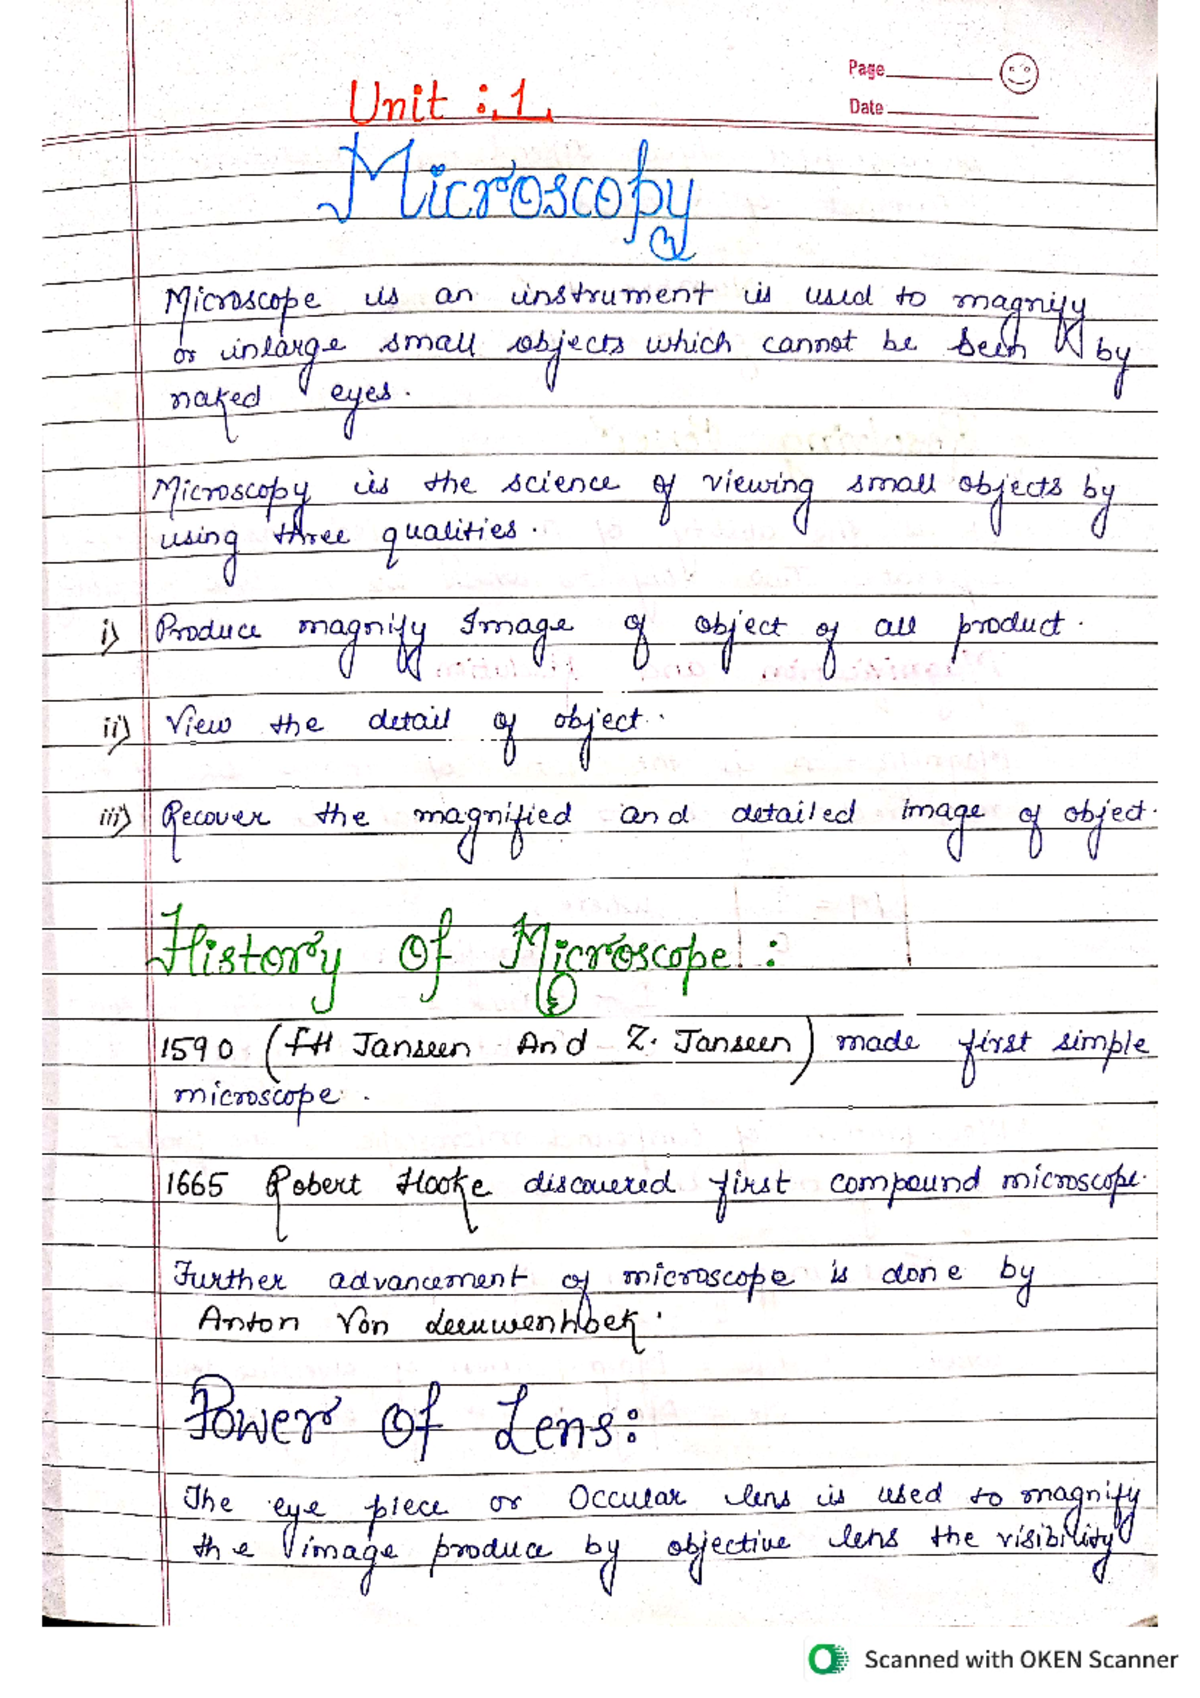 Page
Date
Unit : 1
Microscopy
Microscope is an instrument is used to magnify
or inlarge small objects which cannot be seen by
naked eyes.
Microscopy is the science of viewing small objects by
using three qualities.
i) Produce magnify Image of object of all product.
ii) View the detail of object.
iii) Recover the magnified and detailed image of object.
History Of Microscope :
1590 (FH Janseen And Z. Janseen) made first simple
microscope.
1665 Robert Hooke discovered first compound microscope.
Further advancement of microscope is done by
Anton Von Leeuwenhoek.
Power Of Lens:
The eye piece or Occular lens is used to magnify
the image produce by objective lens the visibility
Scanned with OKEN Scanner